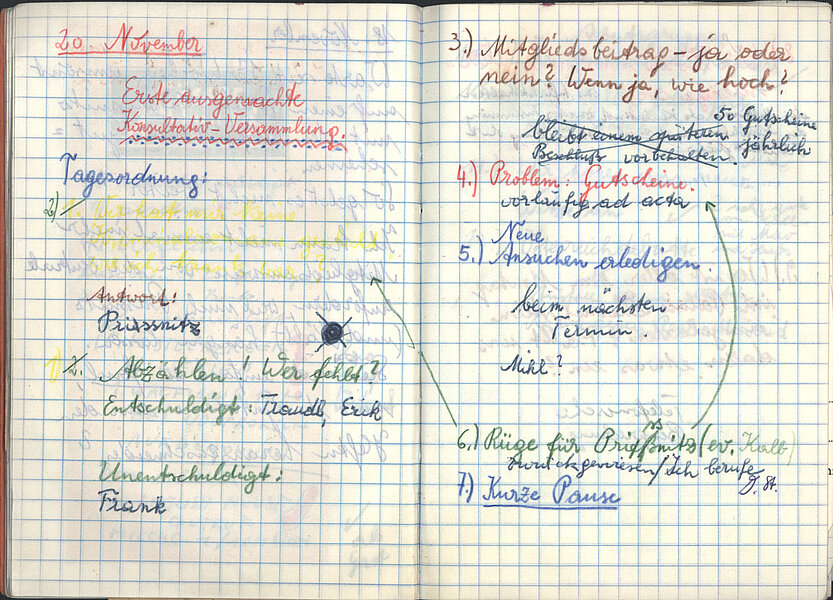 20. November
Erste ausgemachte
Konsultativ-Versammlung.
Tagesordnung:
2)
1. Wer hat nur keine
Antwort:
Priessnitz
1) 2. Abzählen! Wer fehlt?
Entschuldigt: Traudl, Erik
Unentschuldigt:
Frank
3.) Mitgliedsbeitrag - ja oder
nein? Wenn ja, wie hoch?
50 Gutscheine
jährlich
bleibt einem späteren
Beschluß vorbehalten.
4.) Problem: Gutscheine.
vorläufig ad acta
Neue
5.) Ansuchen erledigen.
beim nächsten
Termin.
Mikl?
6.) Rüge für Prießnitz (ev. Kalb)
ss
zurückgewiesen/Ich berufe
D. St.
7.) Kurze Pause